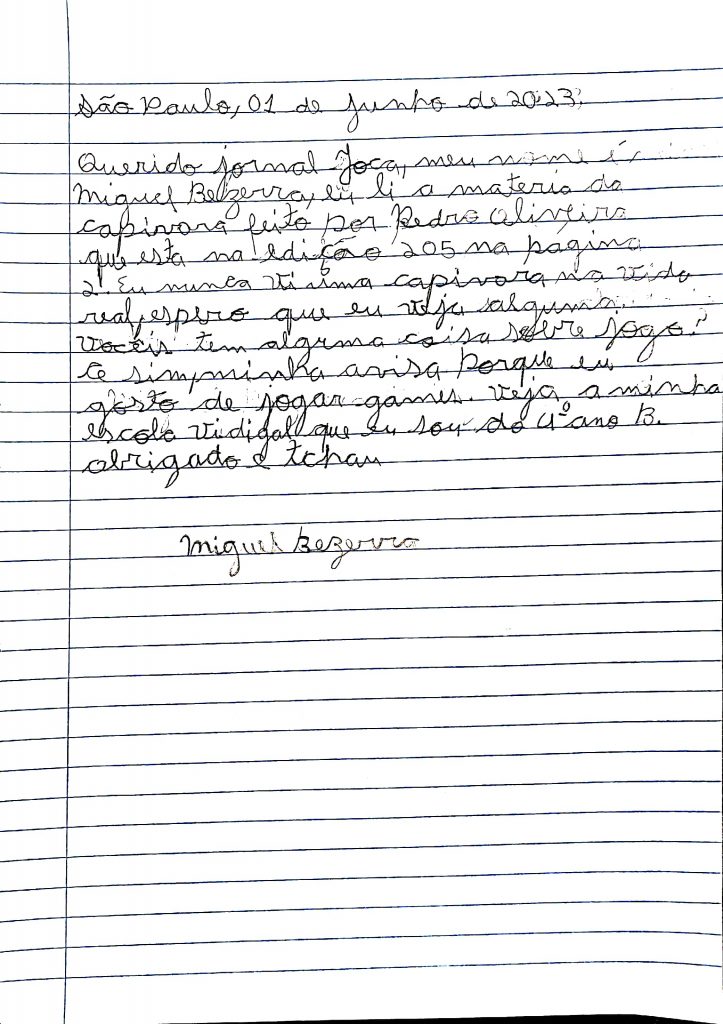 São Paulo, 01 de junho de 2023.
Querido jornal Joca, meu nome é
Miguel Bezerra, eu li a materia da
capivara feito por Pedro Oliveira
que esta na edição 205 na pagina
2. Eu nunca vi uma capivara na vida
real, espero que eu veja alguma.
Vocêis tem alguma coisa sobre jogo?
Ce sim minha avisa porque eu
gosto de jogar games. Veja a minha
escola Vidigal que eu sou do 4º ano B.
obrigado e tchau
Miguel Bezerra